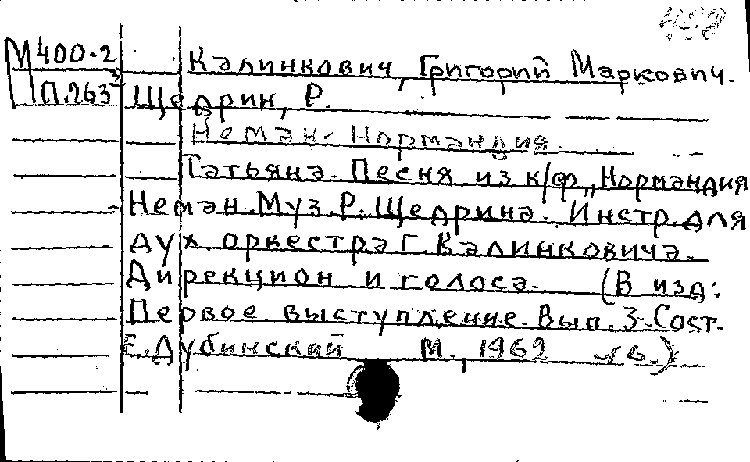 М400-2 Калинкович, Григорий Маркович.
П263 Щедрин, Р.
Неман-Нормандия
Татьяна. Песня из к/ф „Нормандия
Неман. Муз. Р. Щедрина. Инстр. для
дух. оркестра Г. Калинковича.
Дирекцион и голоса. (В изд:
Первое выступление. Вып. 3. Сост.
Е. Дубинский М., 1962